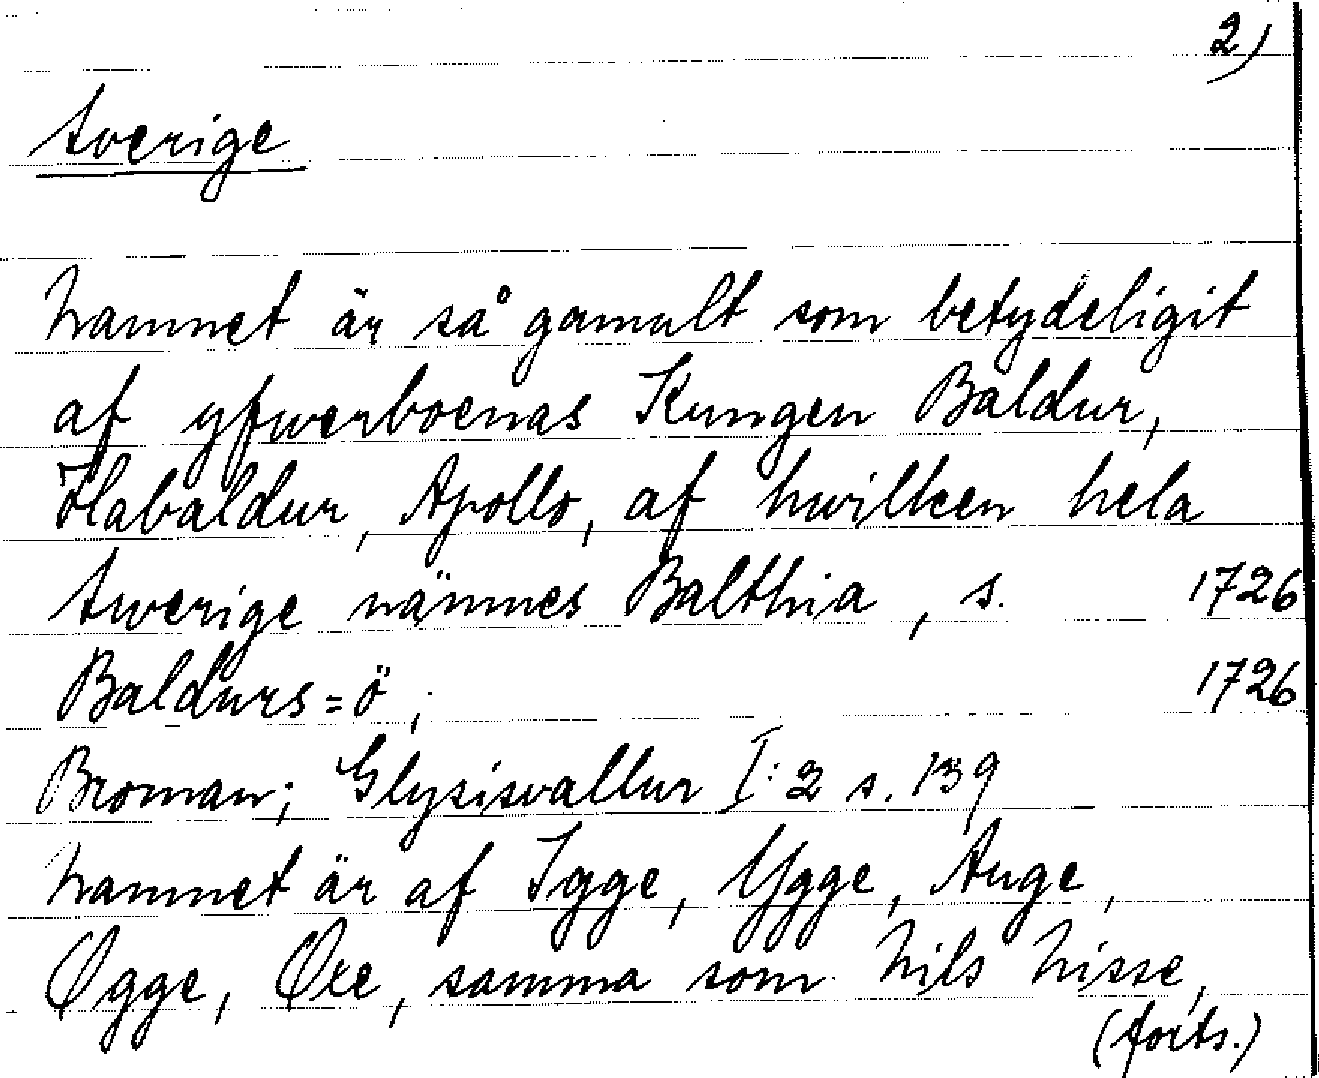 2)
Sverige
Namnet är så gamult som betydeligit
af yfwerboenas Kungen Baldur,
Habaldur, Apollo, af hwilken hela
Swerige nämnes Balthia, s. 1726
Baldurs=ö, 1726
Broman; Glysisvallur I:2 s. 139
Namnet är af Igge, Ygge, Auge,
Øgge, Øxe, samma som Nils Nisse,
(forts.)